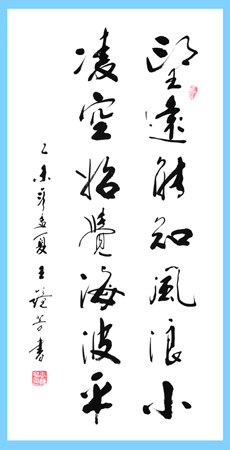 望遠能知風浪小
凌空始覺海波平
乙未年孟夏王芳書